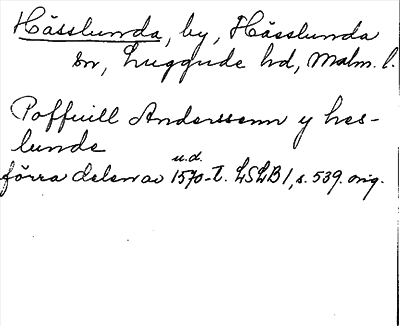 Hässlunda, by, Hässlunda
sn, Luggude hd, Malm. l.
Poffuill Anderssenn y hes-
lunde
u.d.
förra delen av 1570-t. LSLB 1, s. 539. orig.